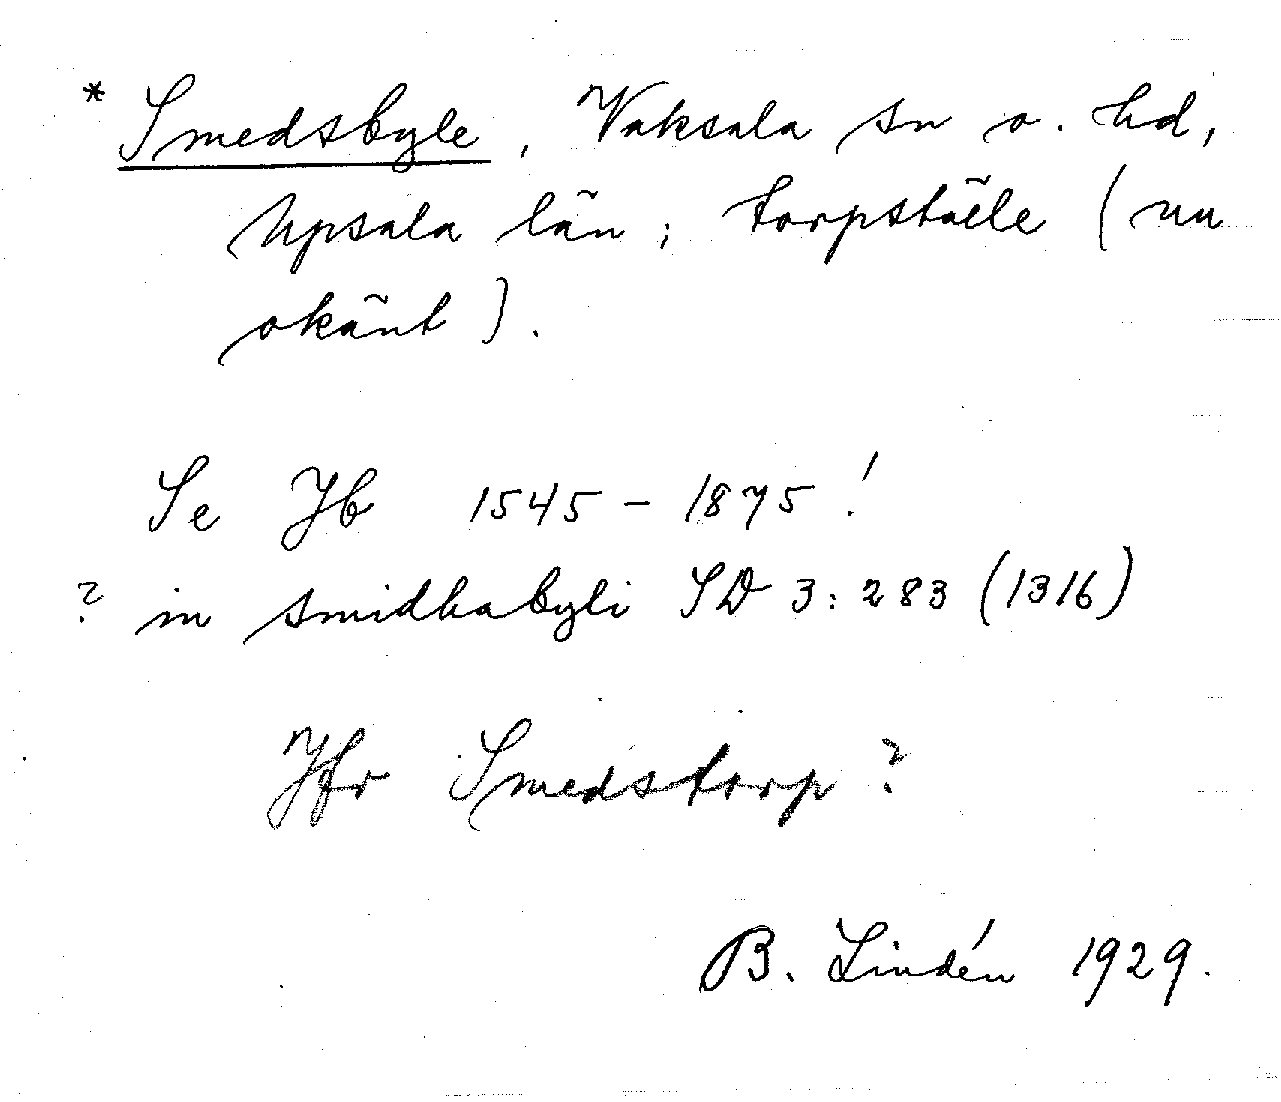 * Smedsbyle, Vaksala sn o. hd,
Upsala län; torpställe (nu
okänt).
Se Jb 1545-1875!
? in smidhabyli SD 3:283 (1316)
Jfr Smedstorp?
B. Lindén 1929.